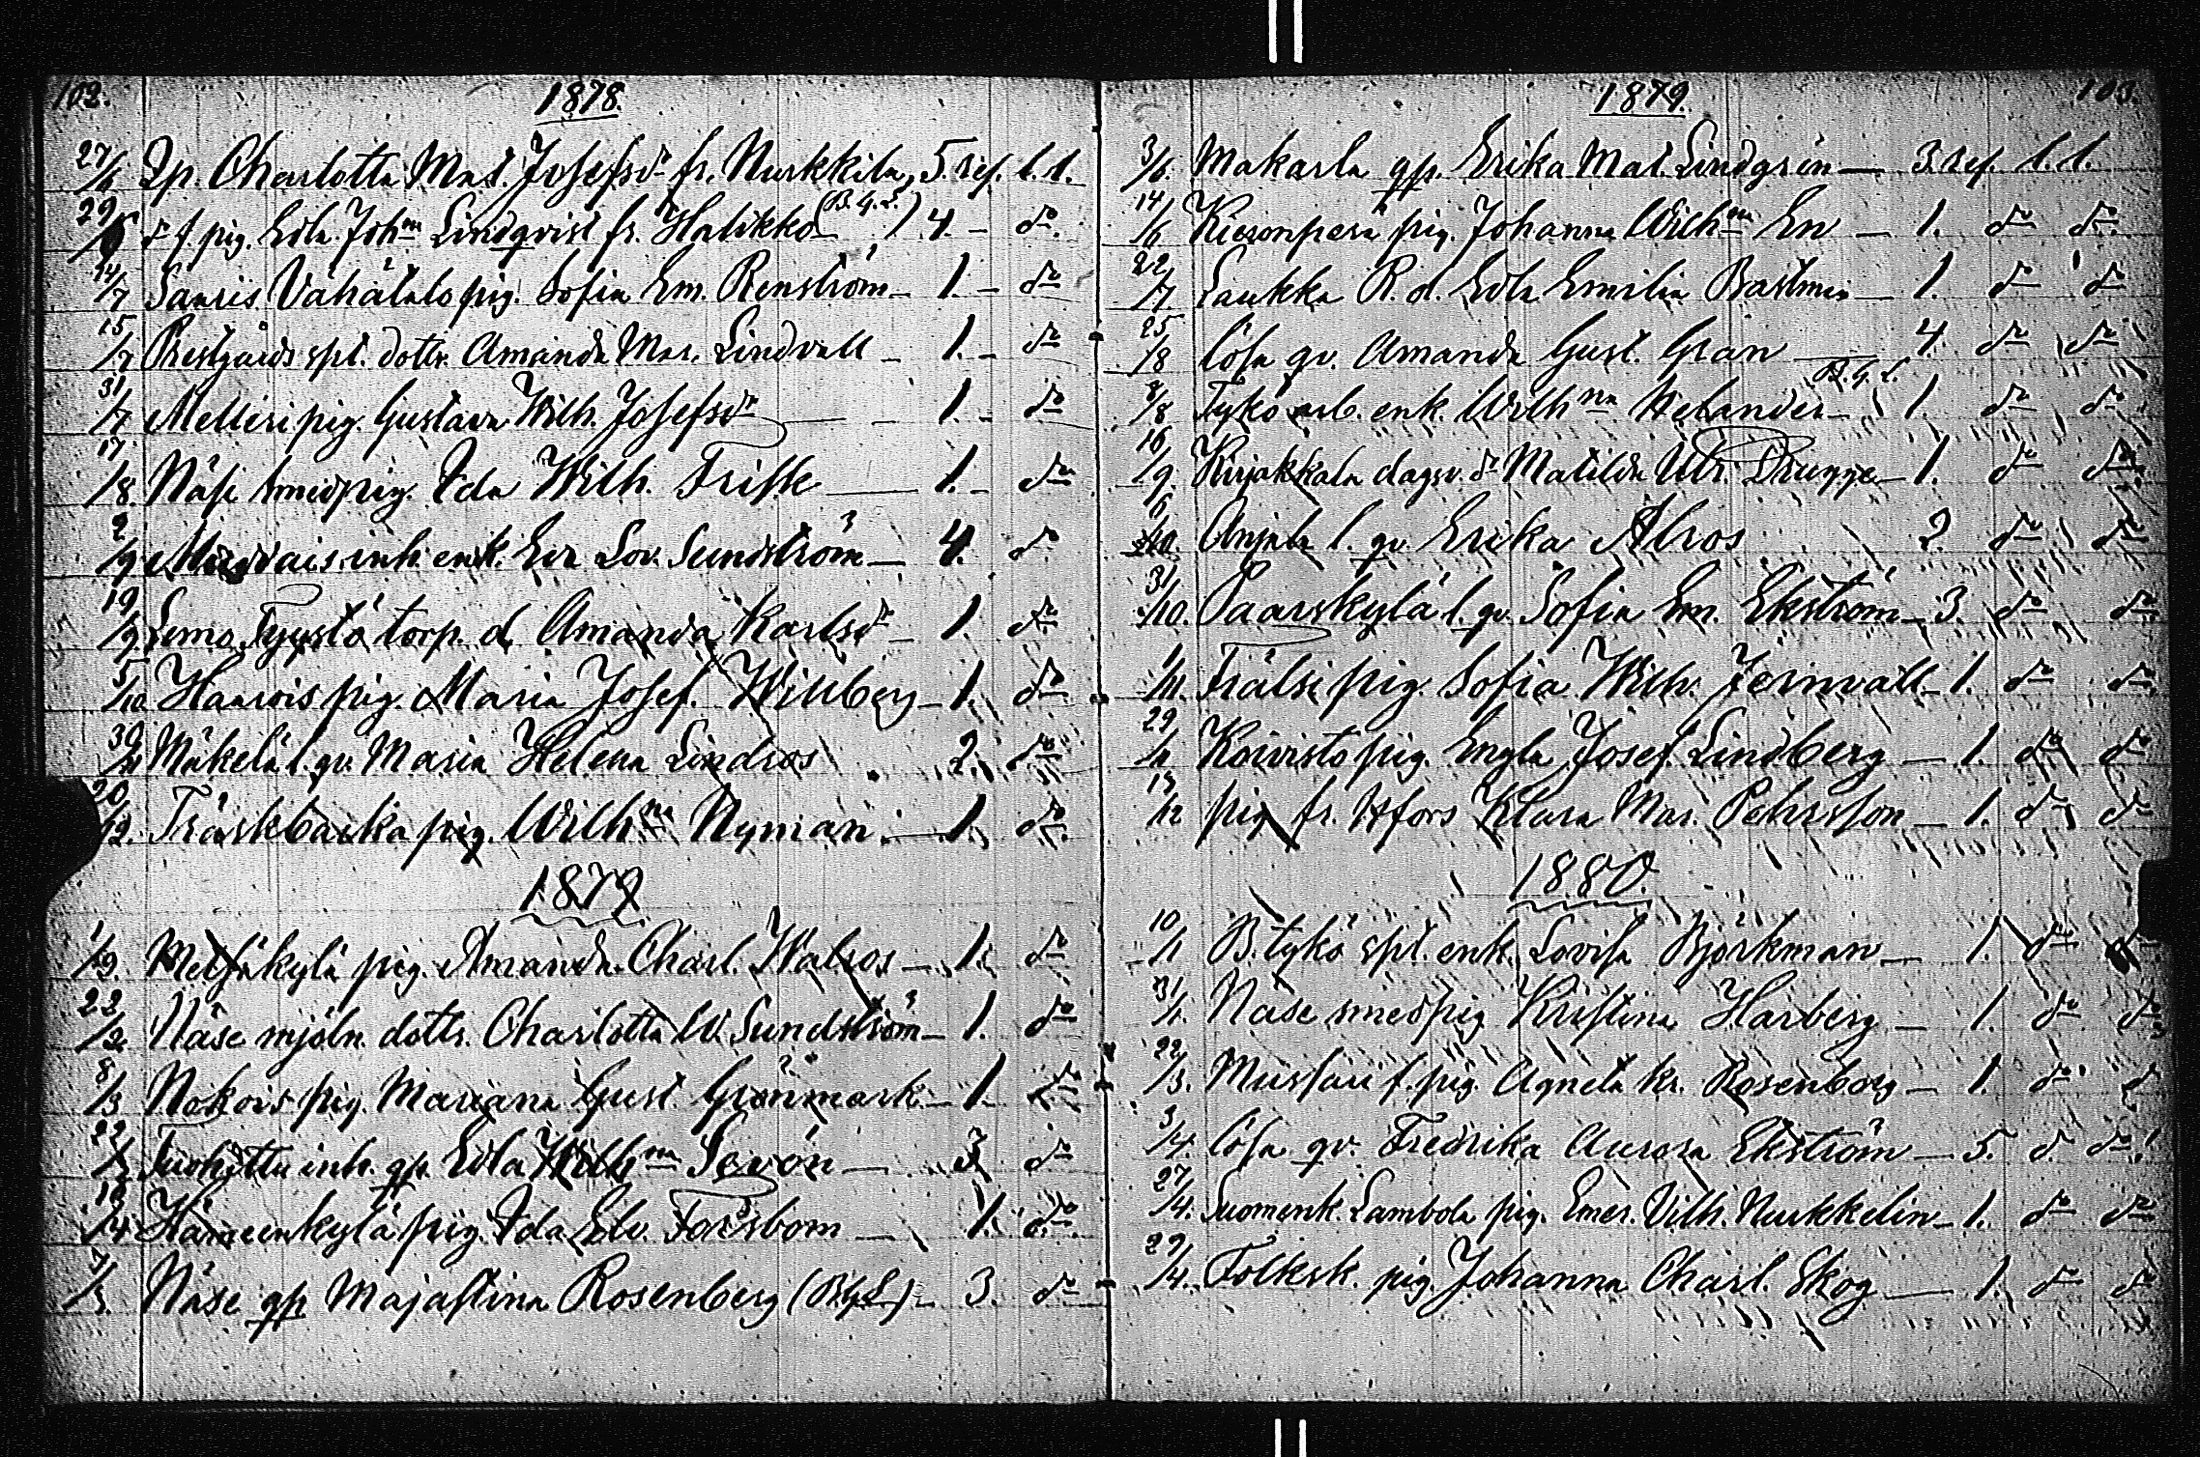 102.
1878.
27/6 Qp. Charlotta Mat. Josefsdr fr. Nurkkila, 5. ref. l. l.
29/6 dr f. pig. Edla Johna Lindqvist fr. Halikko (B. G. L.) 4. — do.
14/7 Sauris Vähätalo pig. Sofia Em. Renström — 1. — do
15/7 Prestgårds spl. dottr. Amanda Mar. Lindvall — 1. — do
31/7 Melliri pig. Gustava Wilh. Josefsdr — 1. — do
17/8. Näsi smedpig. Ida Wilh. Frisk — 1. — do
2/9 inh. enk. Eva Lov. Sundström — 4. do
19/9. Lemo Tyystö torp. d. Amanda Karlsdr — 1. do
5/10 Haarois pig. Maria Josef. Willberg — 1. do
30/11 Mäkelä l. qv. Maria Helena Lindros 2. do
20/12. Träskbacka pig. Wilhna Nyman. — 1. do.
1879
1/2. kylä pig. Amanda Charl. Walros — 1. do
22/2 Näse mjöln. dottr. Charlotta W. Sundström — 1. do
8/3 Nokois pig. Mariana Gust. Grönmark — 1. do
22/3 inh. qp. Edla Wilhna Sevón — 3 do
14/4 Hämeenkylä pig. Ida Edv. Forsbom — 1. do.
3/5. Näse qp Majastina Rosenberg (B.G.L) — 3. do
103.
1879.
3/6. Makarla qp. Erika Mat. Lindgrén — 3. ref. l. l.
14/6 pig. Johanna Wilhna En — 1. do do.
22/7 Laukka R. d. Edla Emilia Bastman — 1. do do
25/8 Lösa qv. Amanda Gust. Gran — 4 do do
8/8 Tyko arb. enk. Wilhna Helander — B. G. L. 1. do do
16/9. Kirjakkala dagsv. dr Matilda Ulr. Drugge — 1. do do
6/10. Anjala l. qv Erika Alros 2. do do
31/10. Paarskylä l. qv. Sofia Em. Ekström — 3. do do
1/11. Frälsi pig. Sofia Wilh. Jernvall — 1. do do
29/11 Koivisto pig. Engla Josef. Lindberg — 1. do do
13/12 pig fr. Hfors Klara Mar. Pehrsson — 1. do do
1880.
10/1 B. tyko spl. enk. Lovisa Björkman — 1. do do
31/1. Näse smedpig Kristina Harberg — 1. do do
22/3. f. pig. Agneta Kr. Rosenborg — 1. do do
3/4. Lösa qv. Fredrika Aurora Ekström — 5. do do
27/4. Suomenk. Lambola pig. Emer. Vilh. Nurkkelin — 1. do do
29/4. Folksk. pig. Johanna Charl. Skog — 1. do do